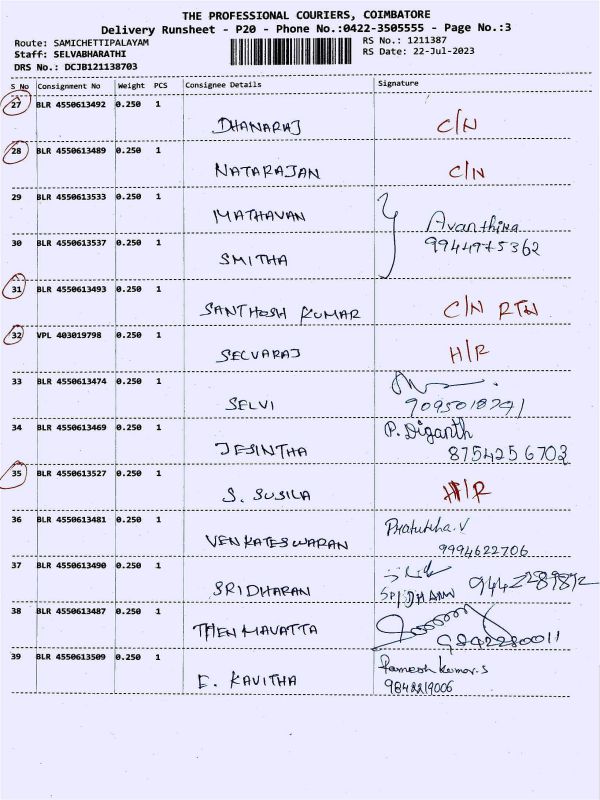 THE PROFESSIONAL COURIERS, COIMBATORE
Delivery Runsheet - P20 - Phone No.:0422-3505555 - Page No.:3
Route: SAMICHETTIPALAYAM RS No.: 1211387
Staff: SELVABHARATHI RS Date: 22-Jul-2023
DRS No.: DCJB121138703
S No Consignment No Weight PCS Consignee Details Signature
27 BLR 4550613492 0.250 1
DHANARAJ C/N
28 BLR 4550613489 0.250 1
NATARAJAN C/N
29 BLR 4550613533 0.250 1
MATHAVAN Avanthika
30 BLR 4550613537 0.250 1 9944975362
SMITHA
31 BLR 4550613493 0.250 1
SANTHOSH KUMAR C/N RTN
32 VPL 403019798 0.250 1
SELVARAJ H/R
33 BLR 4550613474 0.250 1
SELVI
34 BLR 4550613469 0.250 1 P. Diganth
JESINTHA 8754256703
35 BLR 4550613527 0.250 1
S. SUSILA H/R
36 BLR 4550613481 0.250 1
VENKATESWARAN 9994622706
37 BLR 4550613490 0.250 1
SRIDHARAN 9442289892
38 BLR 4550613487 0.250 1
THENMAVATTA 9842280011
39 BLR 4550613509 0.250 1 Ramesh Kumar.S
E. KAVITHA 9842219006